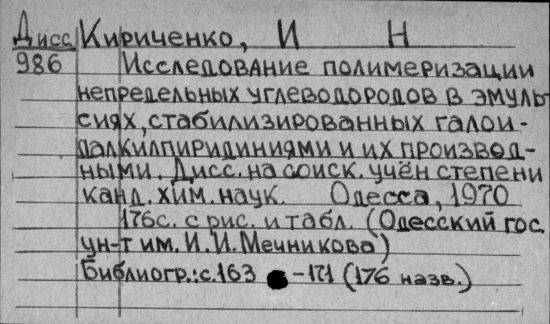 Дисс Кириченко, И Н
986 Исследование полимеризации
непредельных углеводородов в эмуль-
сиях, стабилизированных галои-
далкилпиридиниями и их производ-
ными. Дисс. на соиск. учён степени
канд. хим. наук. Одесса, 1970
176с. с рис. и табл. (Одесский гос.
ун-т им. И. И. Мечникова)
Библиогр.: с. 163 -171 (176 назв.)